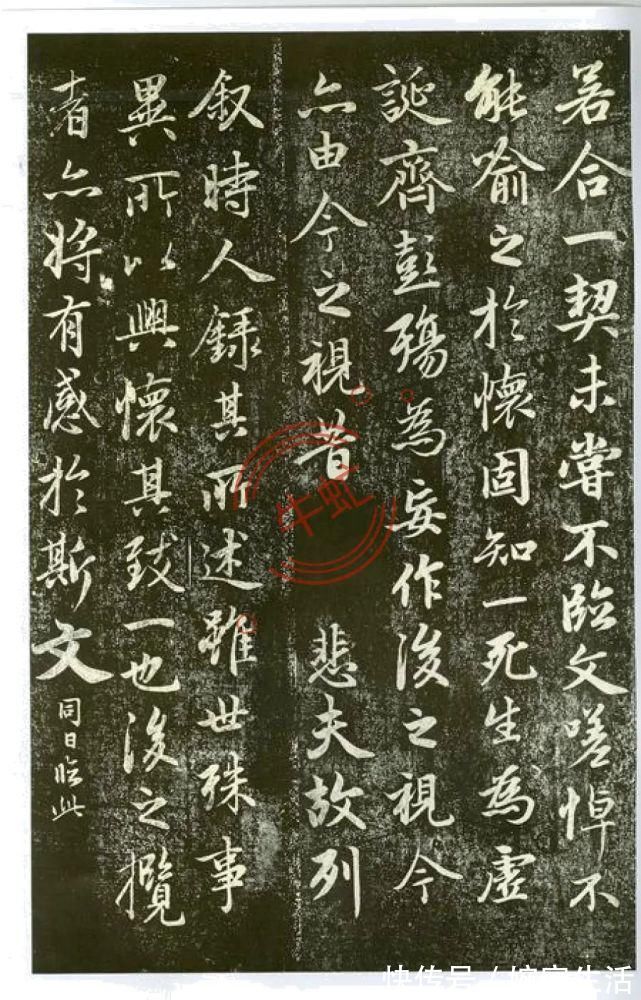 若合一契未嘗不臨文嗟悼不
能喻之於懷固知一死生為虛
誕齊彭殤為妄作後之視今
亦由今之視昔 悲夫故列
叙時人錄其所述雖世殊事
異所以興懷其致一也後之攬
者亦将有感於斯文
同日臨此
牛虹
快传号/婉容生活